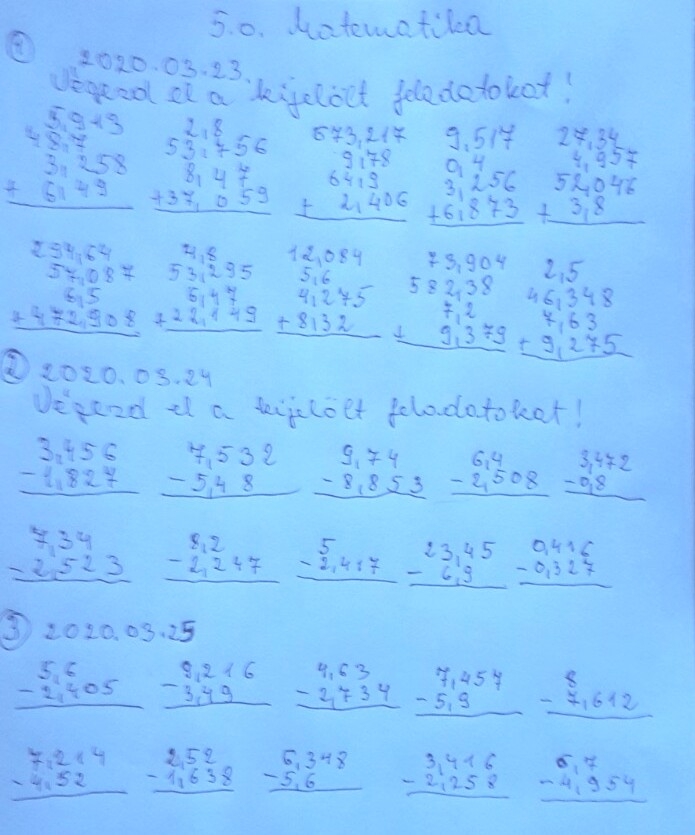 5.o. Matematika
1 2020.03.23.
Végezd el a kijelölt feladatokat!
5,913 2,8 573,217 9,517 27,34
48,7 53,756 9,78 0,4 4,957
3,258 8,47 64,9 3,256 52,046
+ 6,49 +37,059 + 2,406 +6,873 + 3,8
294,64 4,8 12,084 73,904 2,5
57,087 53,295 5,6 582,38 46,348
6,5 6,47 4,275 7,2 7,63
+472,908 +22,149 +8,32 + 9,379 + 9,275
2 2020.03.24
Végezd el a kijelölt feladatokat!
3,456 7,532 9,74 6,4 3,472
-1,827 -5,48 -8,853 -2,508 -0,8
7,34 8,2 5 23,45 0,416
-2,523 -2,247 -2,417 - 6,9 -0,327
3 2020.03.25
5,6 9,216 4,63 7,457 8
-2,405 -3,49 -2,734 -5,9 -7,612
7,214 2,52 6,348 3,416 6,7
-4,52 -1,638 -5,6 -2,258 -4,954